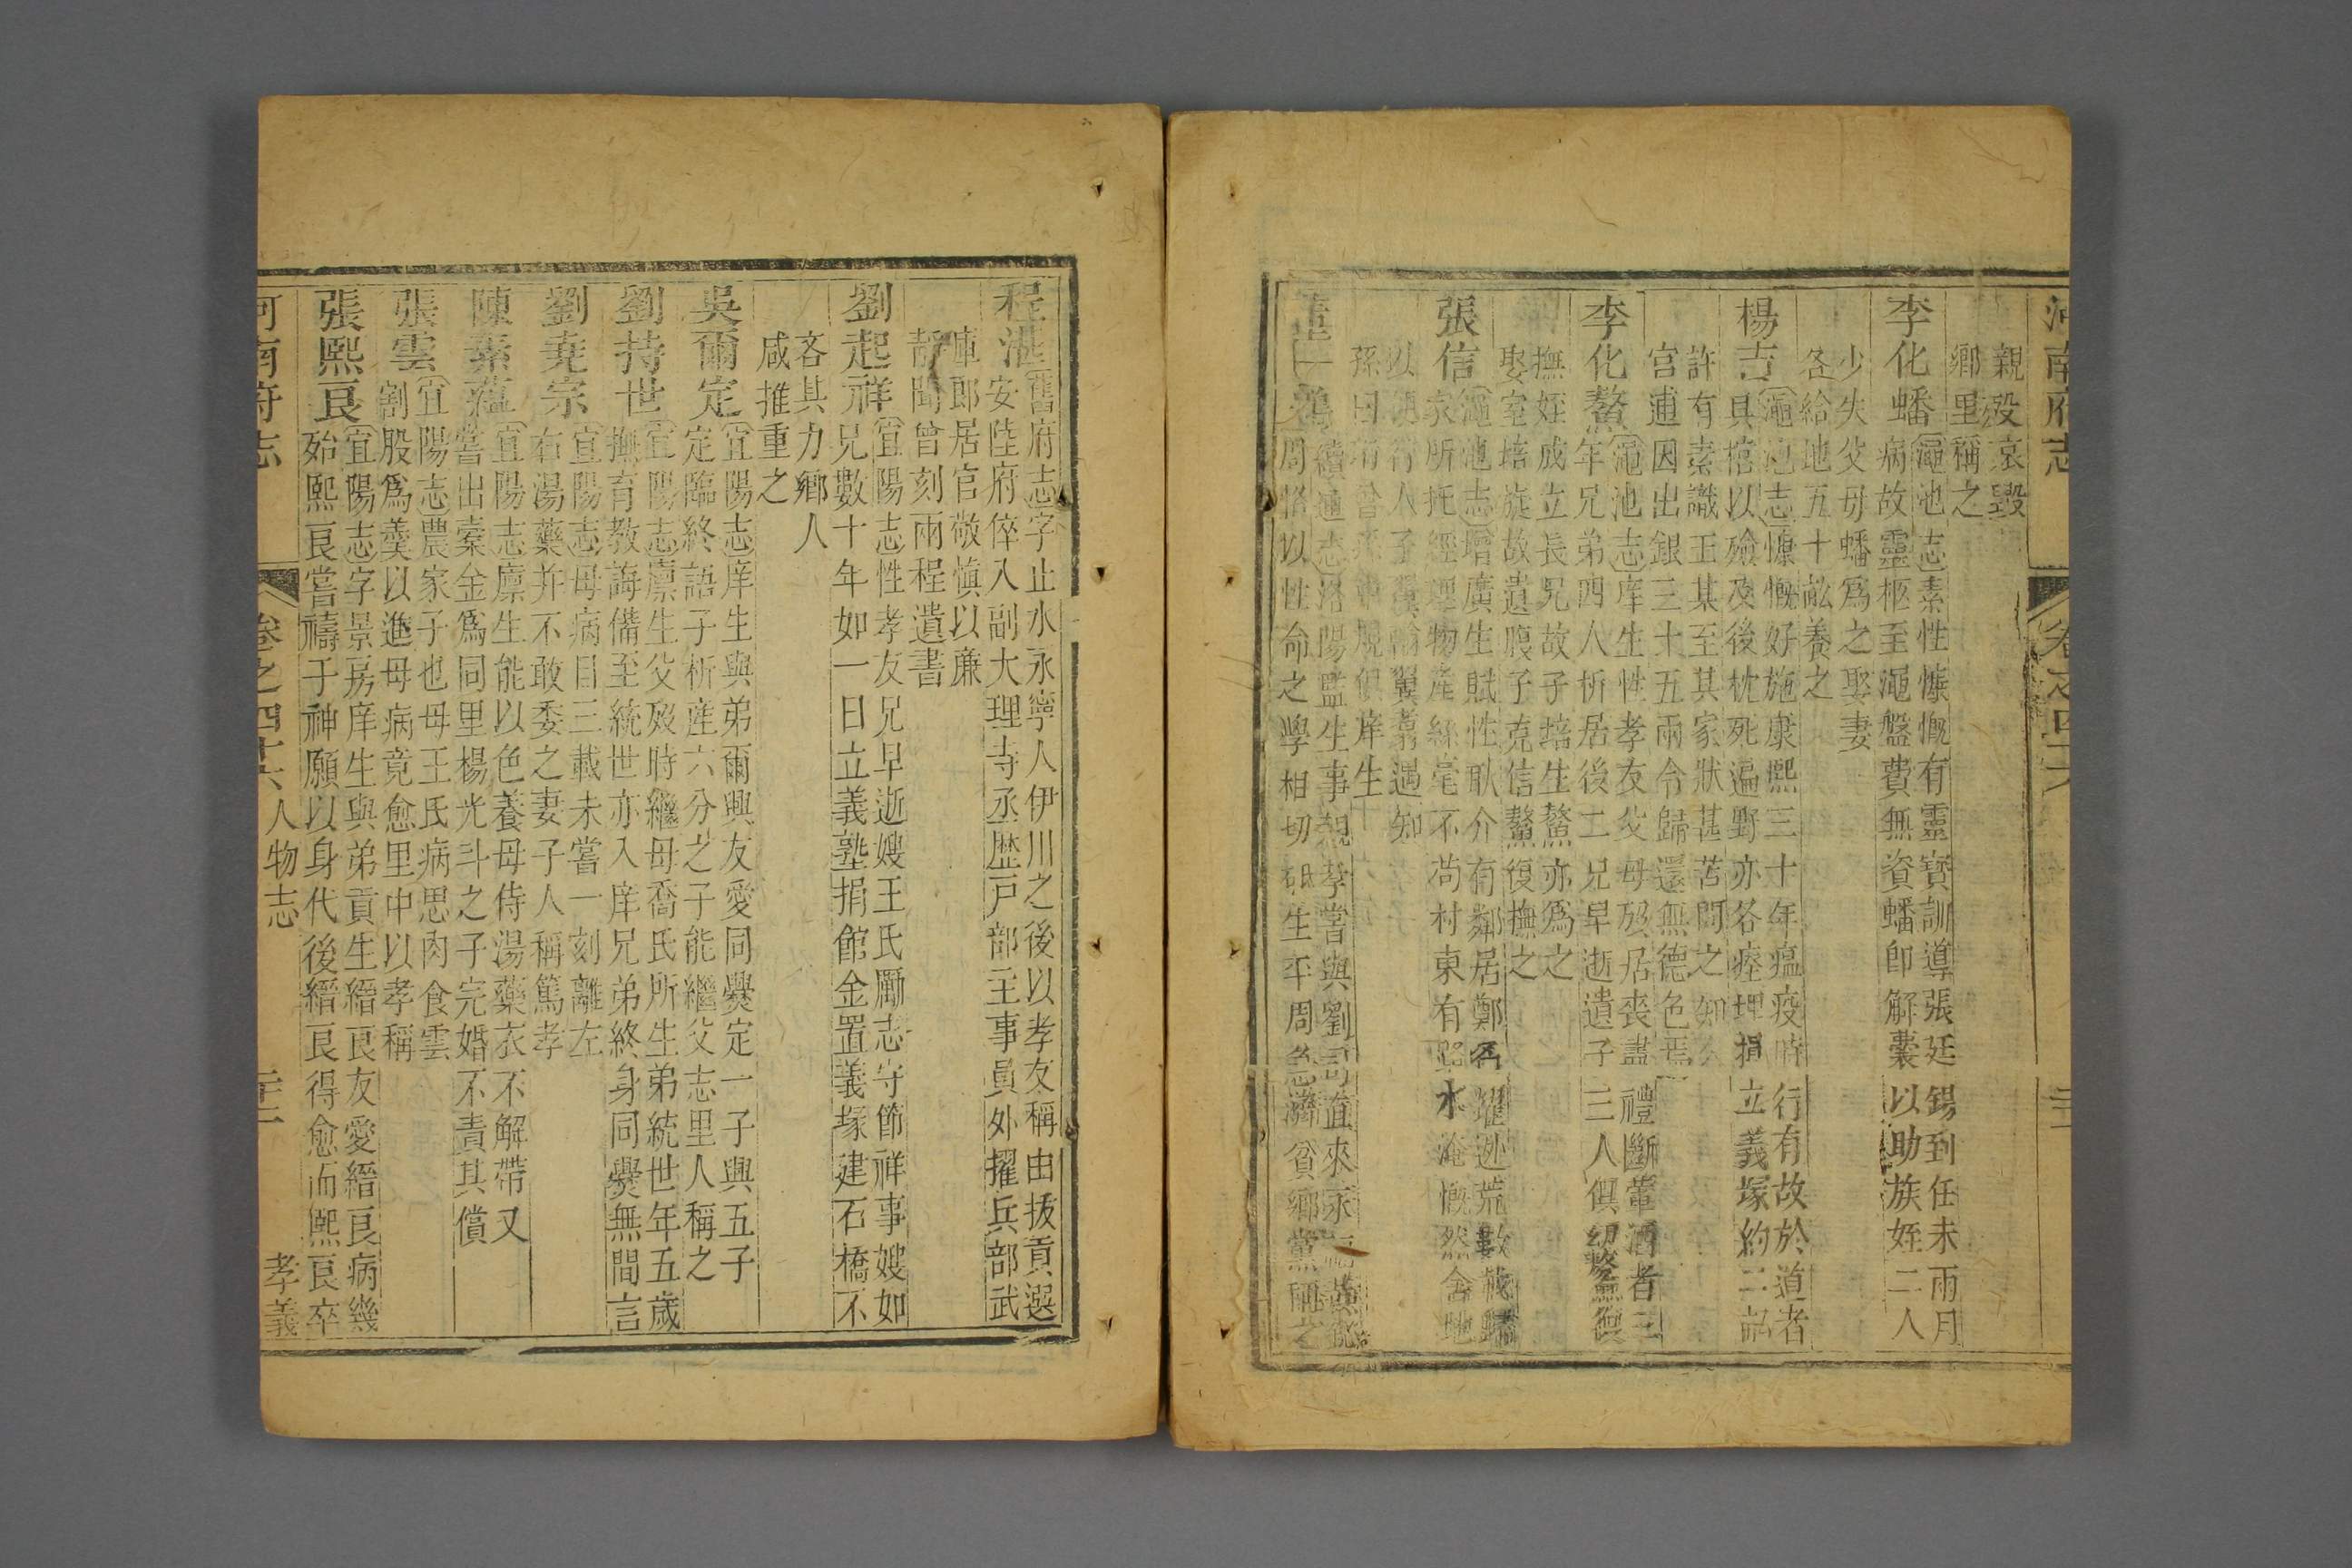 河南府志
卷之四十六
親殁哀毀
鄉里稱之
李化蟠
澠池志素性慷慨有靈寶訓導張廷錫到任未兩月
病故靈柩至澠盤費無資蟠卽解囊以助族姪二人
少失父母蟠爲之娶妻
各給地五十畝養之
楊吉
澠池志慷慨好施康熙三十年瘟疫時行有故於道者
具棺以殮及後枕死遍野亦各瘞埋捐立義塚約二畝
許有素識王某至其家狀甚苦問之知欠
官逋因出銀三十五兩令歸還無德色焉
李化鰲
澠池志庠生性孝友父母殁居喪盡禮斷葷酒者三
年兄弟四人析居後二兄早逝遺子三人俱幼鰲俱
撫姪成立長兄故子培生鰲亦爲之
娶室培旋故遺腹子克信鰲復撫之
張信
澠池志增廣生賦性耿介有鄰居鄭名
家所托經理物產絲毫不苟村東有
水淹慨然舍地
以便行人子漢翰翼翥遇知
孫曰
俱庠生
續通志洛陽監生事親孝嘗與劉司直來
周恪以性命之學相切
生平周急濟貧鄉黨稱之
程湛
舊府志字止水永寧人伊川之後以孝友稱由拔貢選
安陸府倅入副大理寺丞歷戶部主事員外擢兵部武
庫郎居官敬慎以廉
靜聞曾刻兩程遺書
劉起祥
宜陽志性孝友兄早逝嫂王氏勵志守節祥事嫂如
兄數十年如一日立義塾捐館金置義塚建石橋不
吝其力鄉人
咸推重之
吳爾定
宜陽志庠生與弟爾興友愛同爨定一子興五子
定臨終語子析產六分之子能繼父志里人稱之
劉持世
宜陽志廩生父殁時繼母喬氏所生弟統世年五歲
撫育教誨備至統世亦入庠兄弟終身同爨無間言
劉堯宗
宜陽志母病目三載未嘗一刻離左
右湯藥并不敢委之妻子人稱篤孝
陳素蘊
宜陽志廩生能以色養母侍湯藥衣不解帶又
嘗出橐金爲同里楊光斗之子完婚不責其償
張雲
宜陽志農家子也母王氏病思肉食雲
割股爲羹以進母病竟愈里中以孝稱
張熙良
宜陽志字景房庠生與弟貢生縉良友愛縉良病幾
殆熙良嘗禱于神願以身代後縉良得愈而熙良卒
河南府志
卷之四十六
人物志
孝義